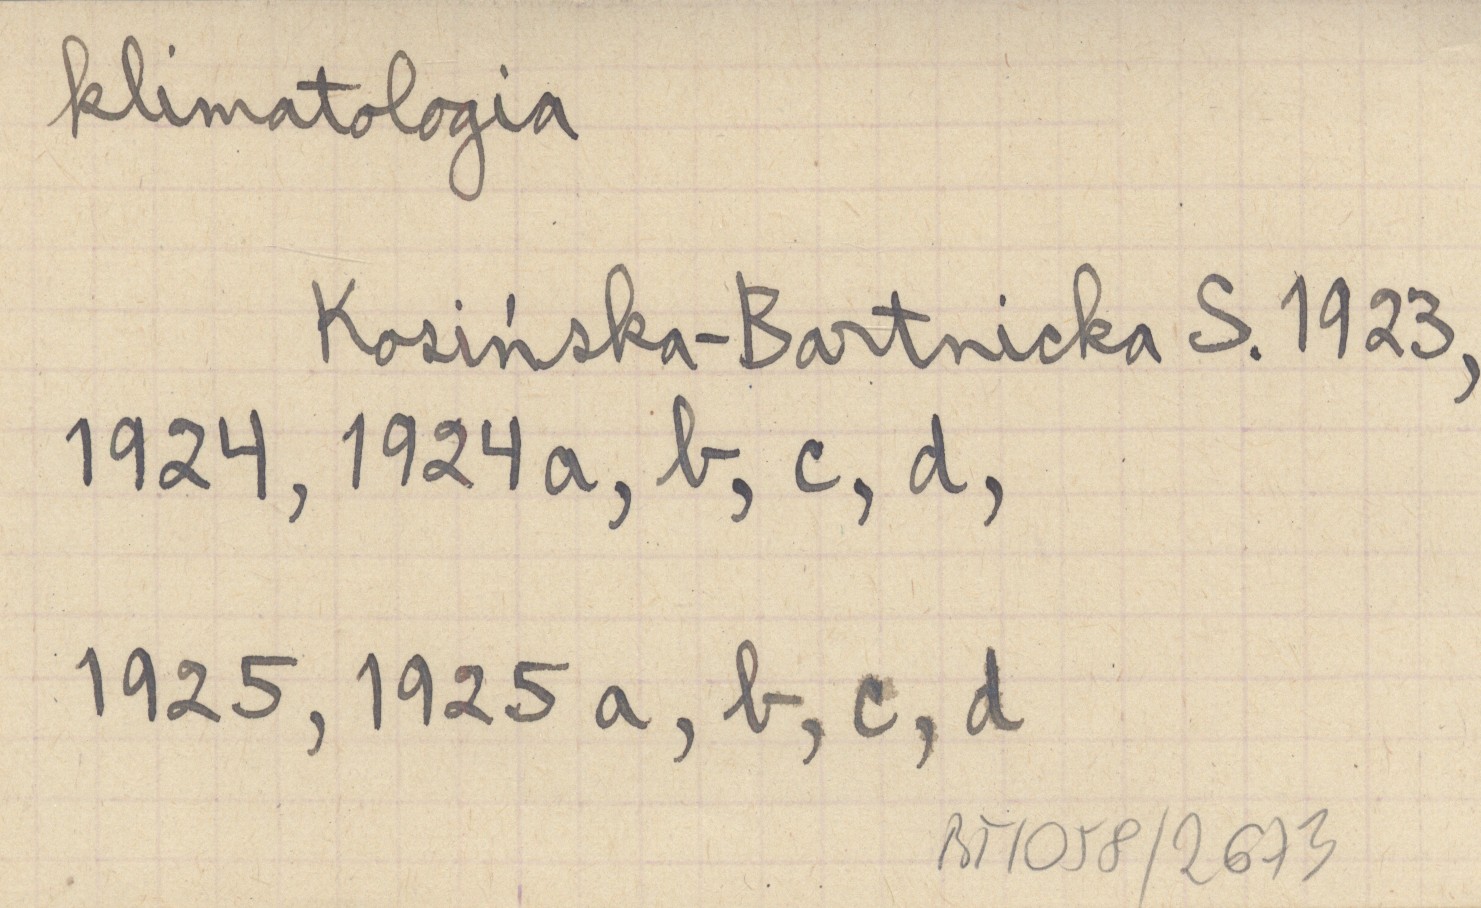 klimatologia
Kosińska-Bartnicka S. 1923,
1924, 1924a, b, c, d,
1925, 1925a, b, c, d
BT1058/2673